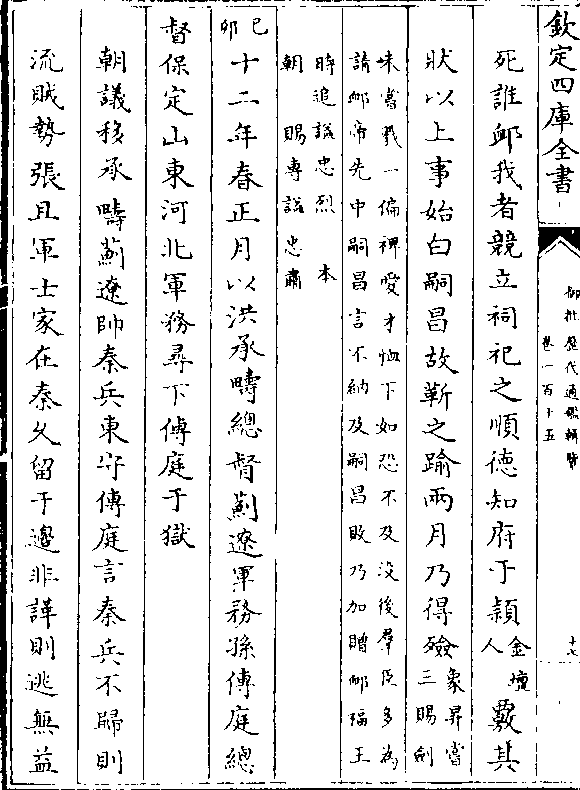 欽定四庫全書
御批歷代通鑑輯覽
卷一百十五
十七
死誰卹我者競立祠祀之順德知府于潁金壇人覈其
狀以上事始白嗣昌故靳之踰兩月乃得殮象昇嘗三賜劍
未嘗戮一偏裨愛才恤下如恐不及沒後羣臣多為
請卹帝先中嗣昌言不納及嗣昌敗乃加贈卹福王
時追諡忠烈 本
朝 賜專諡忠肅
己卯十二年春正月以洪承疇總督薊遼軍務孫傅庭總
督保定山東河北軍務尋下傅庭于獄
朝議移承疇薊遼帥秦兵東守傅庭言秦兵不歸則
流賊勢張且軍士家在秦久留于邊非譁則逃無益